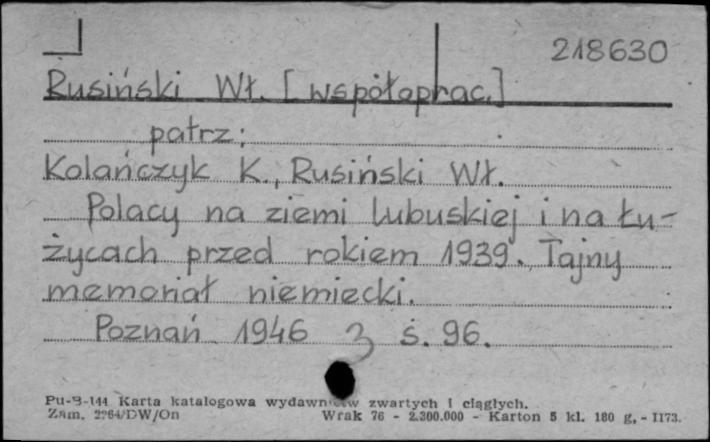 218630
Rusiński Wł. [współoprac.]
patrz:
Kolańczyk K., Rusiński Wł.
Polacy na ziemi lubuskiej i na Łu-
życach przed rokiem 1939. Tajny
memoriał niemiecki.
Poznań 1946 s. 96.
Pu-B-144 Karta katalogowa wydawnictw zwartych i ciągłych.
Zam. 2264/DW/On Wrak 76 - 2.300.000 - Karton 5 kl. 180 g. - 1173.